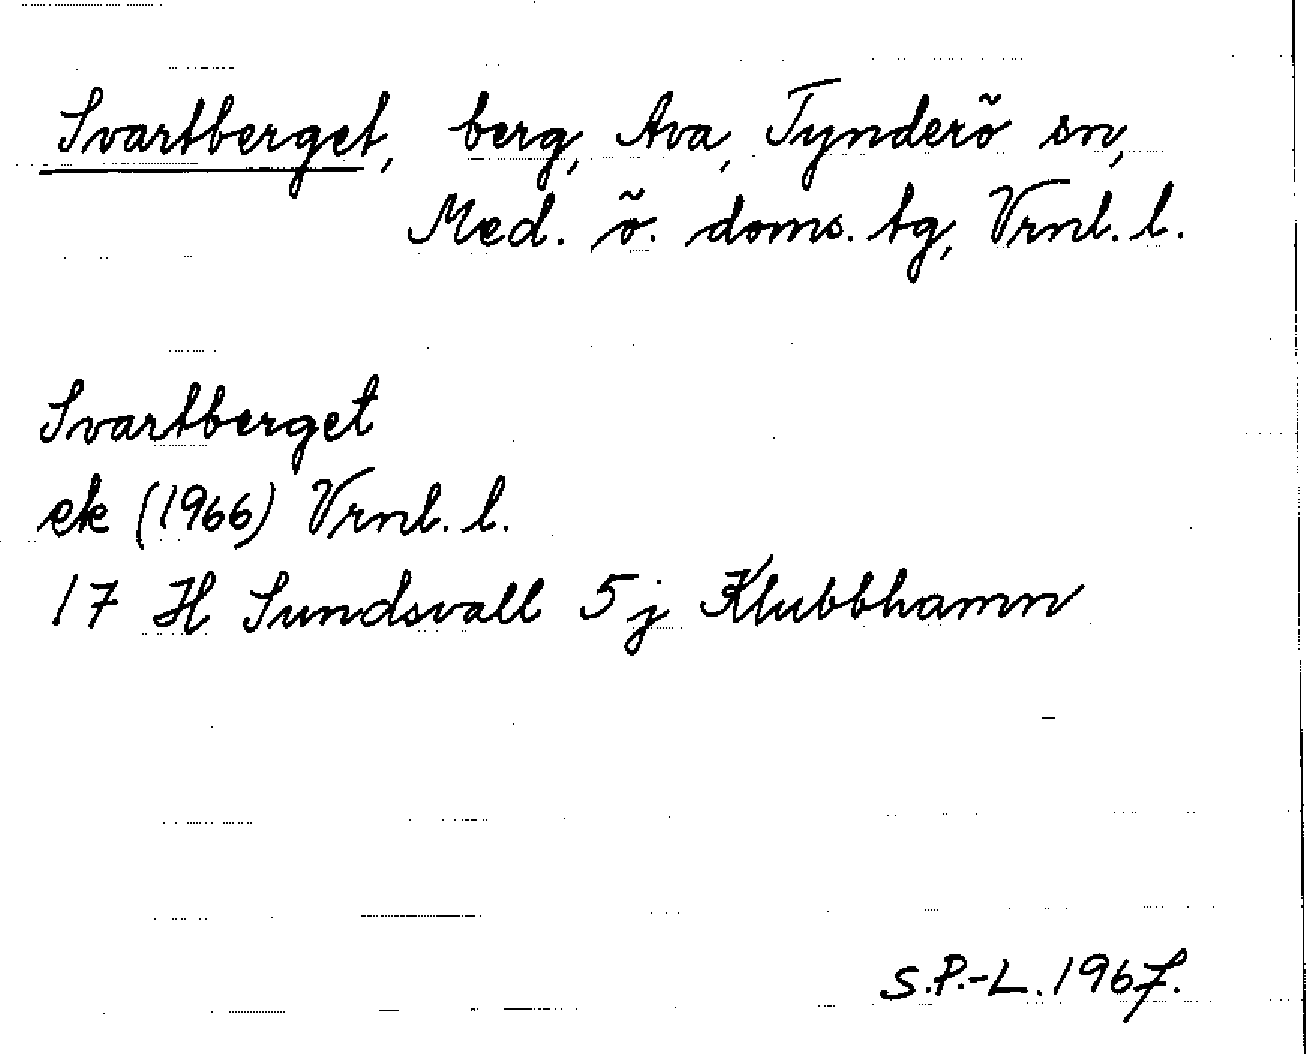 Svartberget, berg, Ava, Tynderö sn,
Med. ö. doms. tg, Vrnl. l.
Svartberget
ek (1966) Vrnl. l.
17 H Sundsvall 5 j Klubbhamn
S.P.-L. 1967.